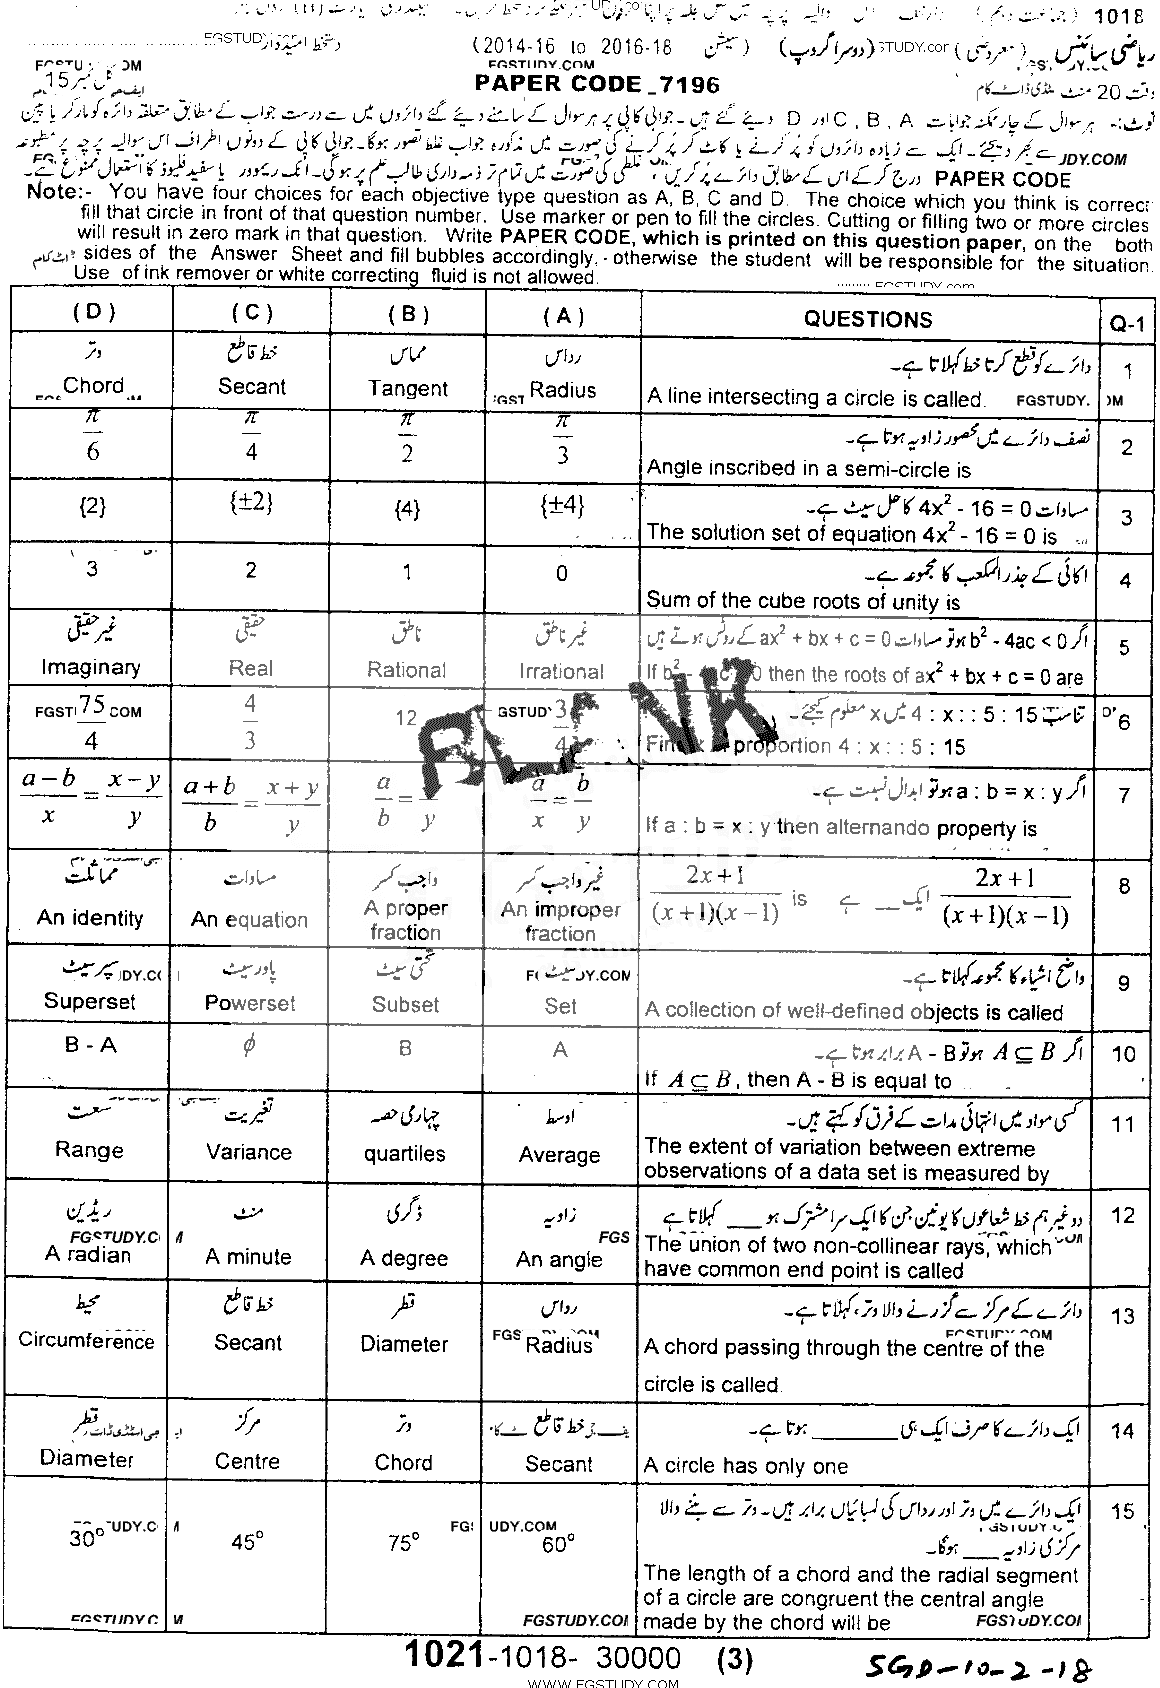 1018
ریاضی سائنس (معروضی) (دوسرا گروپ) (سیشن 2014-16 to 2016-18) دستخط امیدوار
FGSTUDY.COM
وقت 20 منٹ PAPER CODE 7196 کل نمبر 15
نوٹ:- ہر سوال کے چار ممکنہ جوابات A ، B ، C اور D دیئے گئے ہیں۔ جوابی کاپی پر ہر سوال کے سامنے دیئے گئے دائروں میں سے درست جواب کے مطابق متعلقہ دائرہ کو مارکر یا پین
سے بھر دیجئے۔ ایک سے زیادہ دائروں کو پُر کرنے یا کاٹ کر پُر کرنے کی صورت میں مذکورہ جواب غلط تصور ہوگا۔ جوابی کاپی کے دونوں اطراف اس سوالیہ پرچہ پر مطبوعہ
PAPER CODE درج کرکے اس کے مطابق دائرے پُر کریں، غلطی کی صورت میں تمام تر ذمہ داری طالب علم پر ہوگی۔ انک ریموور یا سفید فلیوڈ کا استعمال ممنوع ہے۔
Note:- You have four choices for each objective type question as A, B, C and D. The choice which you think is correct
fill that circle in front of that question number. Use marker or pen to fill the circles. Cutting or filling two or more circles
will result in zero mark in that question. Write PAPER CODE, which is printed on this question paper, on the both
sides of the Answer Sheet and fill bubbles accordingly, otherwise the student will be responsible for the situation.
Use of ink remover or white correcting fluid is not allowed.
(D) (C) (B) (A) QUESTIONS Q-1
وتر خط قاطع مماس رداس دائرے کو قطع کرتا خط کہلاتا ہے۔
Chord Secant Tangent Radius A line intersecting a circle is called. 1
π/6 π/4 π/2 π/3 نصف دائرے میں محصور زاویہ ہوتا ہے۔ 2
Angle inscribed in a semi-circle is
{2} {±2} {4} {±4} مساوات 4x² - 16 = 0 کا حل سیٹ ہے۔ 3
The solution set of equation 4x² - 16 = 0 is
3 2 1 0 اکائی کے جذر المکعب کا مجموعہ ہے۔ 4
Sum of the cube roots of unity is
غیر حقیقی حقیقی ناطق غیر ناطق اگر b² - 4ac < 0 ہو تو مساوات ax² + bx + c = 0 کے روٹس ہوتے ہیں 5
Imaginary Real Rational Irrational If b² - 4c 0 then the roots of ax² + bx + c = 0 are
75/4 4/3 12 3/4 تناسب 4 : x : : 5 : 15 میں x معلوم کیجئے۔ 6
Find x proportion 4 : x : : 5 : 15
BLANK
(a-b)/x = (x-y)/y (a+b)/b = (x+y)/y a/b = /y a/x = b/y اگر a : b = x : y ہو تو ابدال نسبت ہے۔ 7
If a : b = x : y then alternando property is
مماثلت مساوات واجب کسر غیر واجب کسر (2x+1)/((x+1)(x-1)) is ایک __ ہے (2x+1)/((x+1)(x-1)) 8
An identity An equation A proper fraction An improper fraction
سپر سیٹ پاور سیٹ تحتی سیٹ سیٹ واضح اشیاء کا مجموعہ کہلاتا ہے۔ 9
Superset Powerset Subset Set A collection of well-defined objects is called
B - A ϕ B A اگر A ⊆ B ہو تو A - B برابر ہوتا ہے۔ 10
If A ⊆ B, then A - B is equal to
سعت تغیریت چہارمی حصہ اوسط کسی مواد میں انتہائی مدات کے فرق کو کہتے ہیں۔ 11
Range Variance quartiles Average The extent of variation between extreme
observations of a data set is measured by
ریڈین منٹ ڈگری زاویہ دو غیر ہم خط شعاعوں کا یونین جن کا ایک سرا مشترک ہو ___ کہلاتا ہے 12
A radian A minute A degree An angle The union of two non-collinear rays, which
have common end point is called
محیط خط قاطع قطر رداس دائرے کے مرکز سے گزرنے والا وتر، کہلاتا ہے۔ 13
Circumference Secant Diameter Radius A chord passing through the centre of the
circle is called.
قطر مرکز وتر خط قاطع ایک دائرے کا صرف ایک ہی ________ ہوتا ہے۔ 14
Diameter Centre Chord Secant A circle has only one
ایک دائرے میں وتر اور رداس کی لمبائیاں برابر ہیں۔ وتر سے بننے والا 15
30° 45° 75° 60° مرکزی زاویہ ___ ہوگا۔
The length of a chord and the radial segment
of a circle are congruent the central angle
made by the chord will be
1021-1018- 30000 (3) SGD-10-2-18
WWW.FGSTUDY.COM